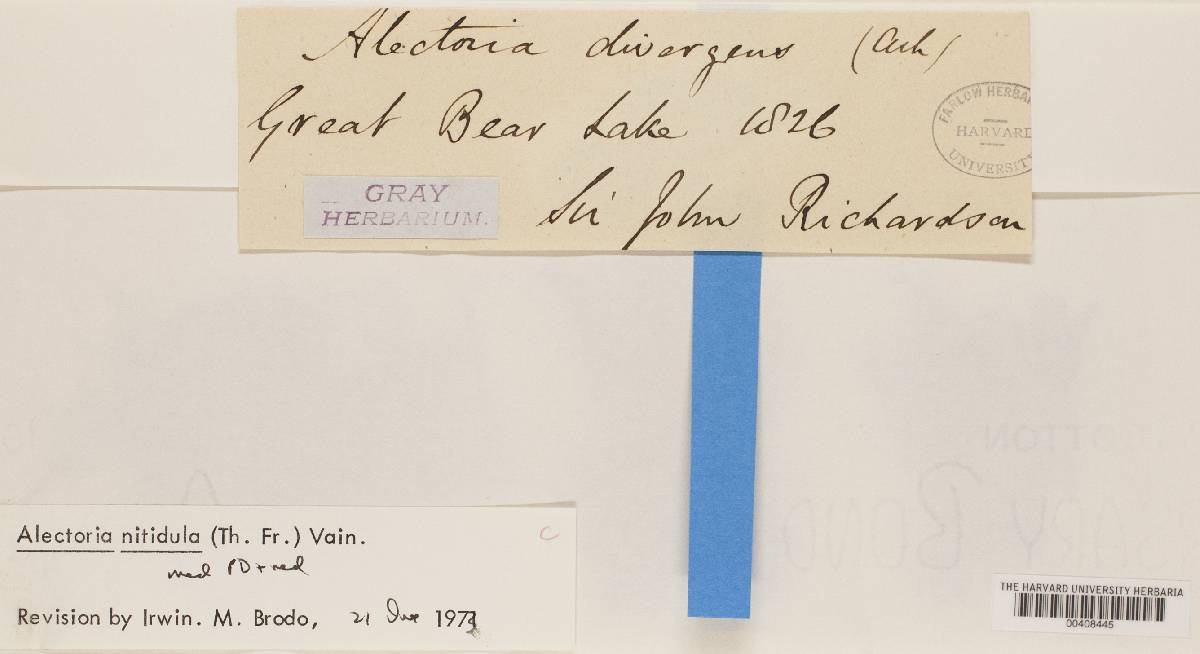 Alectoria divergens (Ach)
Great Bear Lake 1826
FARLOW HERBAR
HARVARD
UNIVERSITY
GRAY
HERBARIUM.
Sir John Richardson
Alectoria nitidula (Th. Fr.) Vain.
C
med PD+red
Revision by Irwin. M. Brodo, 21
THE HARVARD UNIVERSITY HERBARIA
00408445